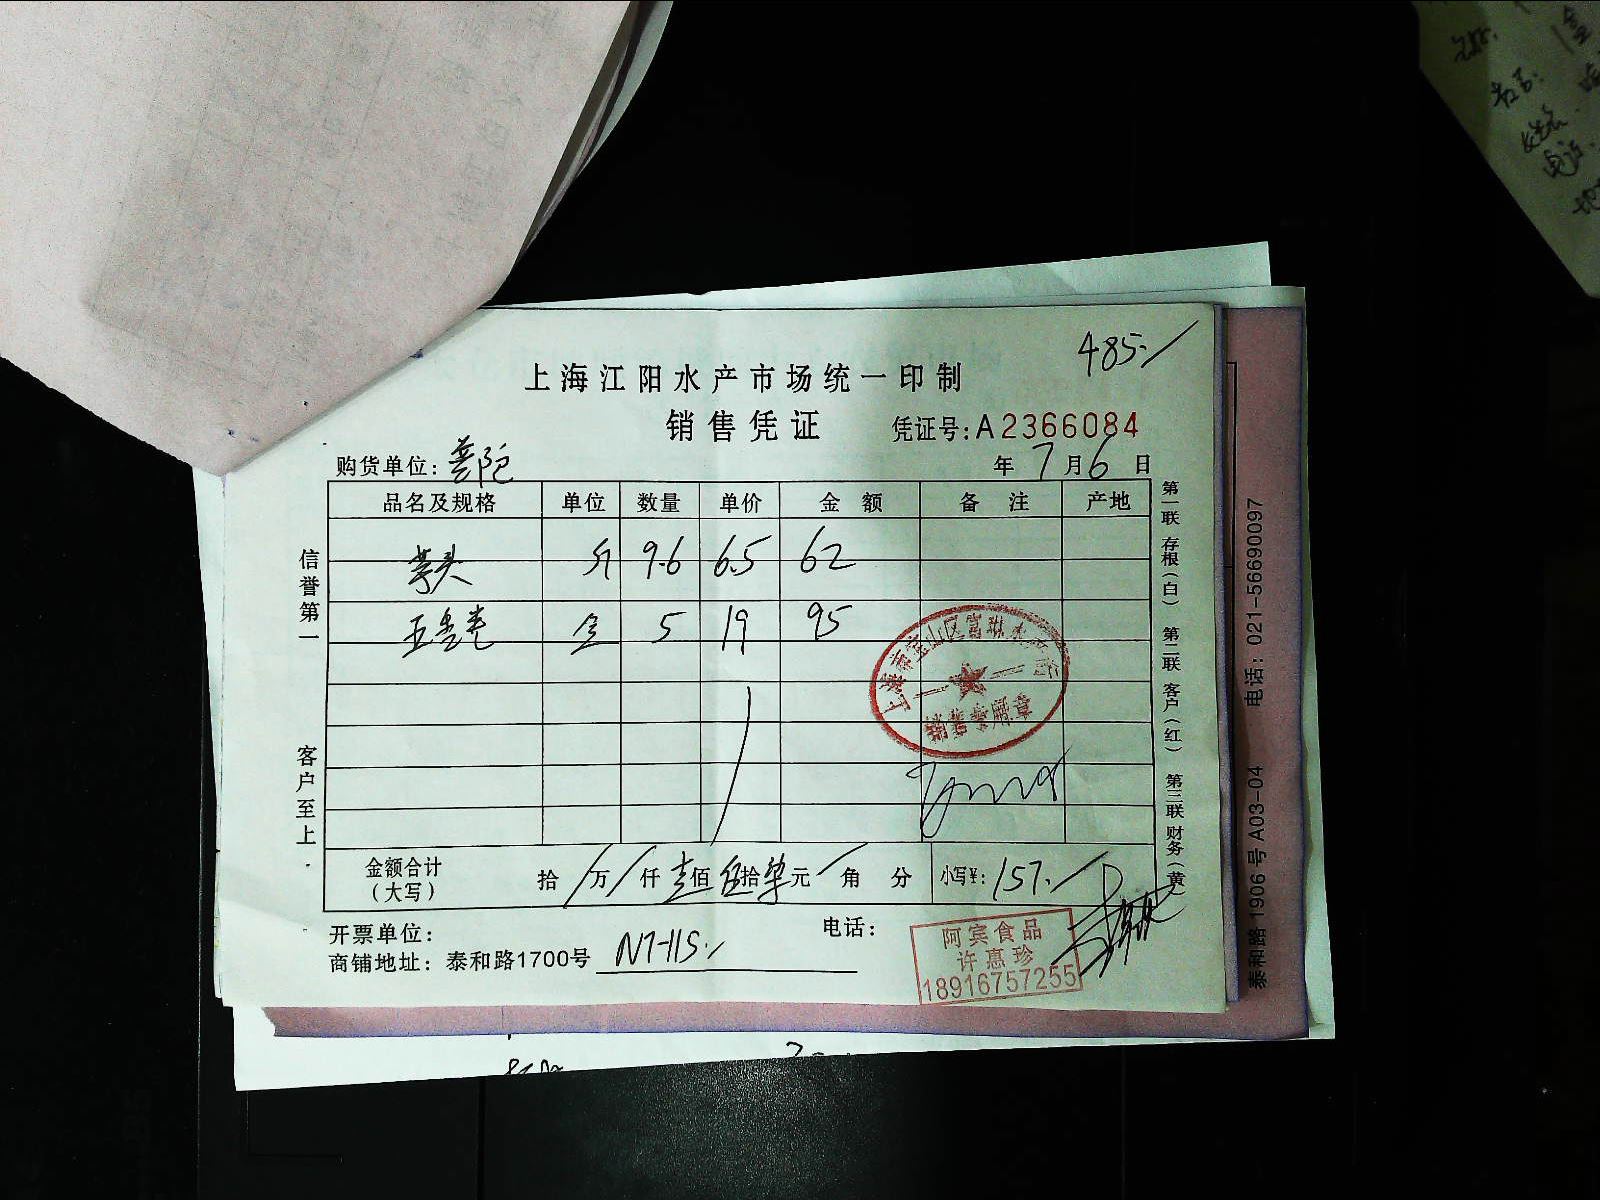 485./
上海江阳水产市场统一印制
销售凭证
凭证号:A2366084
购货单位:普陀
年 7月6日
品名及规格 单位 数量 单价 金额 备注 产地
芋头 斤 9.6 6.5 62
盒 5 19 95
信誉第一
客户至上
第一联 存根(白) 第二联 客户(红) 第三联 财务(黄)
上海市宝山区富琳水产
销售专用章
金额合计(大写) 拾/万/仟壹佰伍拾柒元/角 分 小写¥:157./
开票单位:
电话:
商铺地址:泰和路1700号 N7-115./
阿宾食品
许惠珍
18916757255
泰和路1906号A03-04 电话:021-56690097
电话: